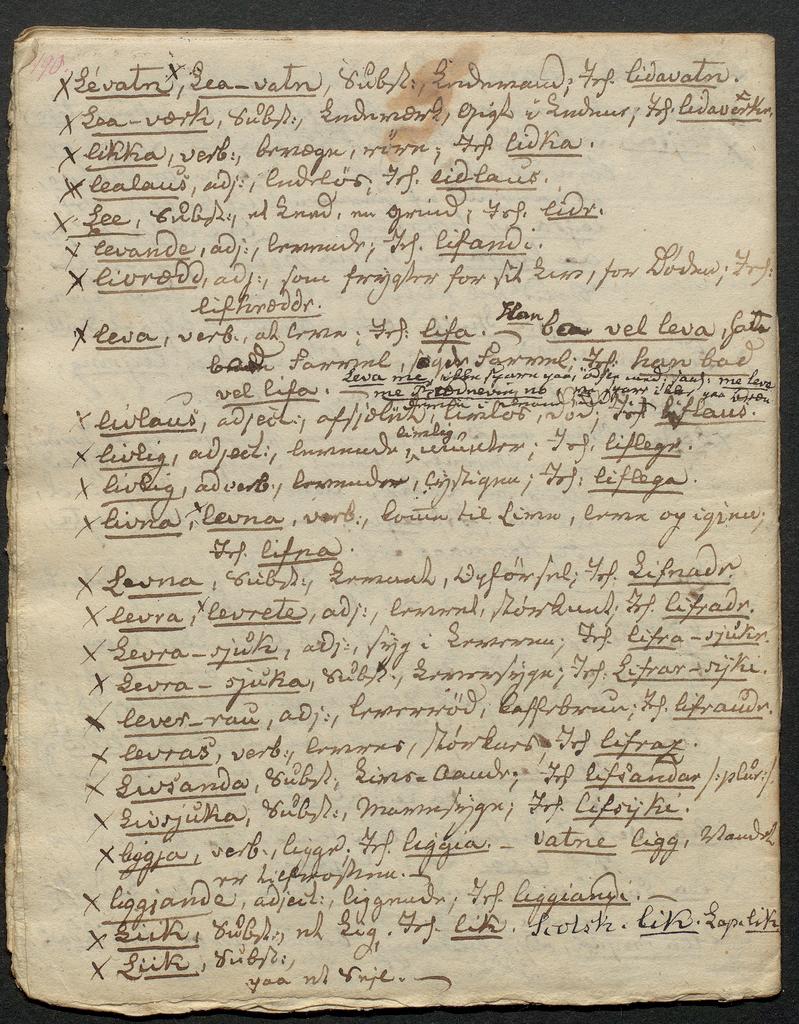 190.
× Lévatn, × Lea-vatn, Subst:, Ledevand; Isl. lidavatn.
× Lea-værk, Subst:, Ledeværk, Gigt i Ledene; Isl. lidaverkr.
× likka, verb:, bevæge, röre; Isl. lidka.
× lealaus, adj:, ledelös; Isl. lidlaus.
× Lee, Subst:, et Leed, en Grind; Isl. lidr.
× levande, adj:, levende; Isl. lifandi.
× livrædd, adj:, som frygter for sit Liv, for Döden; Isl:
lifhræddr.
× leva, verb., at leve; Isl: lifa. — Han ba vel leva,
Farvel, Farvel; Isl. han bad
vel lifa. Leva me, ikke spare paa, me leva
me
× livlaus, adject:, livlös, död; Isl. liflaus.
× livlig, adject:, levende, livlig, munter; Isl. liflegr.
× livlig, adverb:, levender, lystigen; Isl: liflega.
× livna, × levna, verb:, komme til Live, leve op igjen;
Isl. lifna.
× Levna, Subst:, Levnet, Opförsel; Isl. Lifnadr.
× levra, × levrete, adj:, levret, störknet; Isl. lifradr.
× Levra-sjuk, adj:, syg i Leveren; Isl. lifra-sjukr.
× Levra-sjuka, Subst:, Leversyge; Isl. Lifrar-syki.
× lever-rau, adj:, leverröd, kaffebrun; Isl. lifraudr.
× levras, verb:, levres, störknes, Isl. lifraz.
× Livsanda, Subst:, Livs-Aande; Isl. lifsandar /:plur:/.
× Livsjuka, Subst:, Isl. lifsyki.
× liggja, verb:, ligge; Isl. liggia. — vatne ligg, Vandet
er tilfrossen. —
× liggjande, adject:, liggende, Isl. liggiandi. —
× Liik, Subst:, et Lig. Isl. lik. Scotsk. lik. Lap. lik
× Liik, Subst:,
paa et Sejl. —